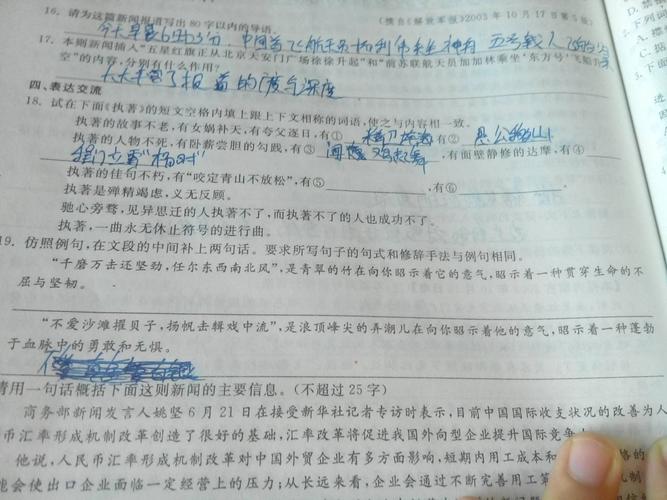 16. 请为这篇新闻报道写出80字以内的导语。 (摘自《解放军报》2003年10月17日第5版)
今天早晨6时23分,中国首飞航天员杨利伟乘神舟五号载人飞船
17. 本则新闻插入“五星红旗正从北京天安门广场徐徐升起”和“前苏联航天员加加林乘坐‘东方号’飞船升
空”的内容,分别有什么作用?
大大丰富了报道的广度与深度
四、表达交流
18. 试在下面《执著》的短文空格内填上跟上下文相称的词语,使之与内容相一致。
执著的故事不老,有女娲补天,有夸父逐日,有① 精卫填海 有② 愚公移山
执著的人物不死,有卧薪尝胆的勾践,有③ 闻鸡起舞 ,有面壁静修的达摩,有④
程门立雪“杨时”
执著的佳句不朽,有“咬定青山不放松”,有⑤ ,有⑥ 。
执著是殚精竭虑,义无反顾。
驰心旁骛,见异思迁的人执著不了,而执著不了的人也成功不了。
执著,一曲永无休止符号的进行曲。
19. 仿照例句,在文段的中间补上两句话。要求所写句子的句式和修辞手法与例句相同。
“千磨万击还坚劲,任尔东西南北风”,是青翠的竹在向你昭示着它的意气,昭示着一种贯穿生命的不
屈与坚韧。
“不爱沙滩擢贝子,扬帆去辑戏中流”,是浪顶峰尖的弄潮儿在向你昭示着他的意气,昭示着一种蓬勃
于血脉中的勇敢和无惧。
请用一句话概括下面这则新闻的主要信息。(不超过25字)
商务部新闻发言人姚坚6月21日在接受新华社记者专访时表示,目前中国国际收支状况的改善为人
币汇率形成机制改革创造了很好的基础,汇率改革将促进我国外向型企业提升国际竞争
他说,人民币汇率形成机制改革对中国外贸企业有多方面影响,短期内用工成本和 格的
能会使出口企业面临一定经营上的压力;从长远来看,企业会通过不断完善用工 机制